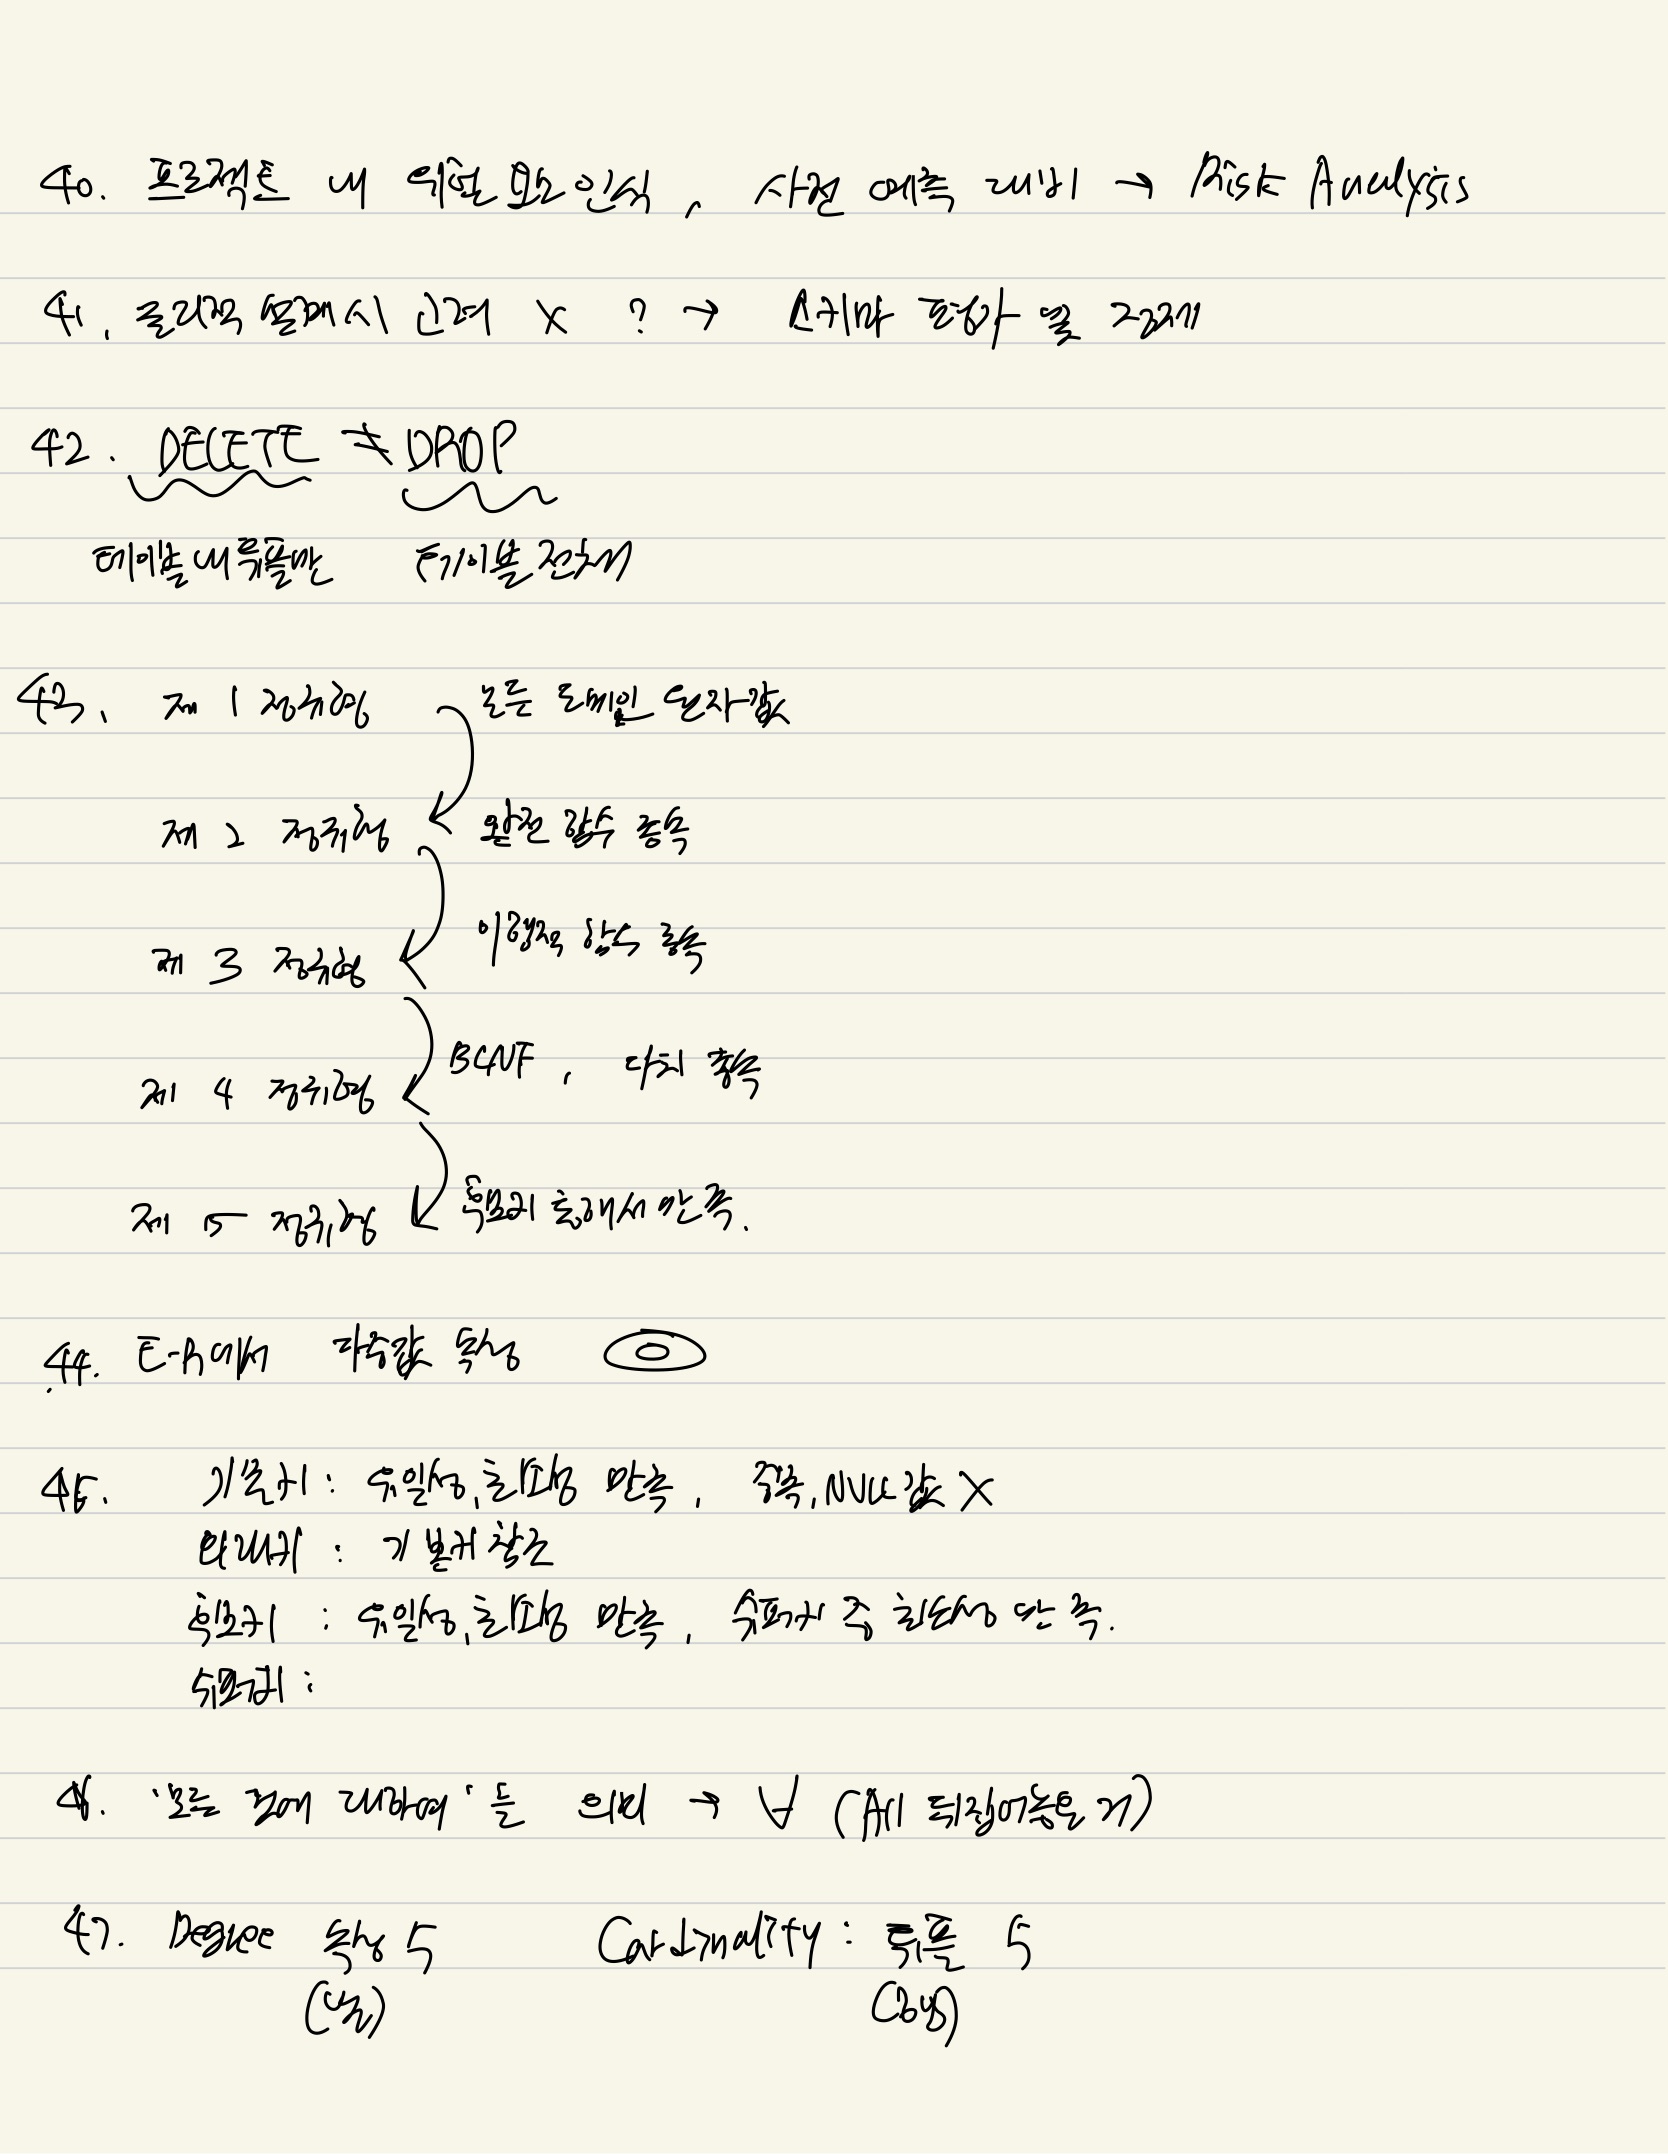 40. 프로젝트 내 위험 요소 인식, 사전 예측 대비 → Risk Analysis
41. 물리적 설계시 고려 X ? → 스키마 평가 및 정제
42. DELETE ≠ DROP
테이블 내 튜플만 테이블 전체
43. 제 1 정규형 모든 도메인 원자값
제 2 정규형 완전 함수 종속
제 3 정규형 이행적 함수 종속
BCNF, 다치 종속
제 4 정규형
제 5 정규형 후보키 통해서 만족.
44. E-R에서 다중값 속성
45. 기본키 : 유일성, 최소성 만족, 중복, NULL 값 X
외래키 : 기본키 참조
후보키 : 유일성, 최소성 만족, 슈퍼키 중 최소성 만족.
슈퍼키 :
46. '모든 것에 대하여' 를 의미 → ∀ (All 뒤집어놓은 거)
47. Degree 속성 5 Cardinality : 튜플 5
(열) (행)